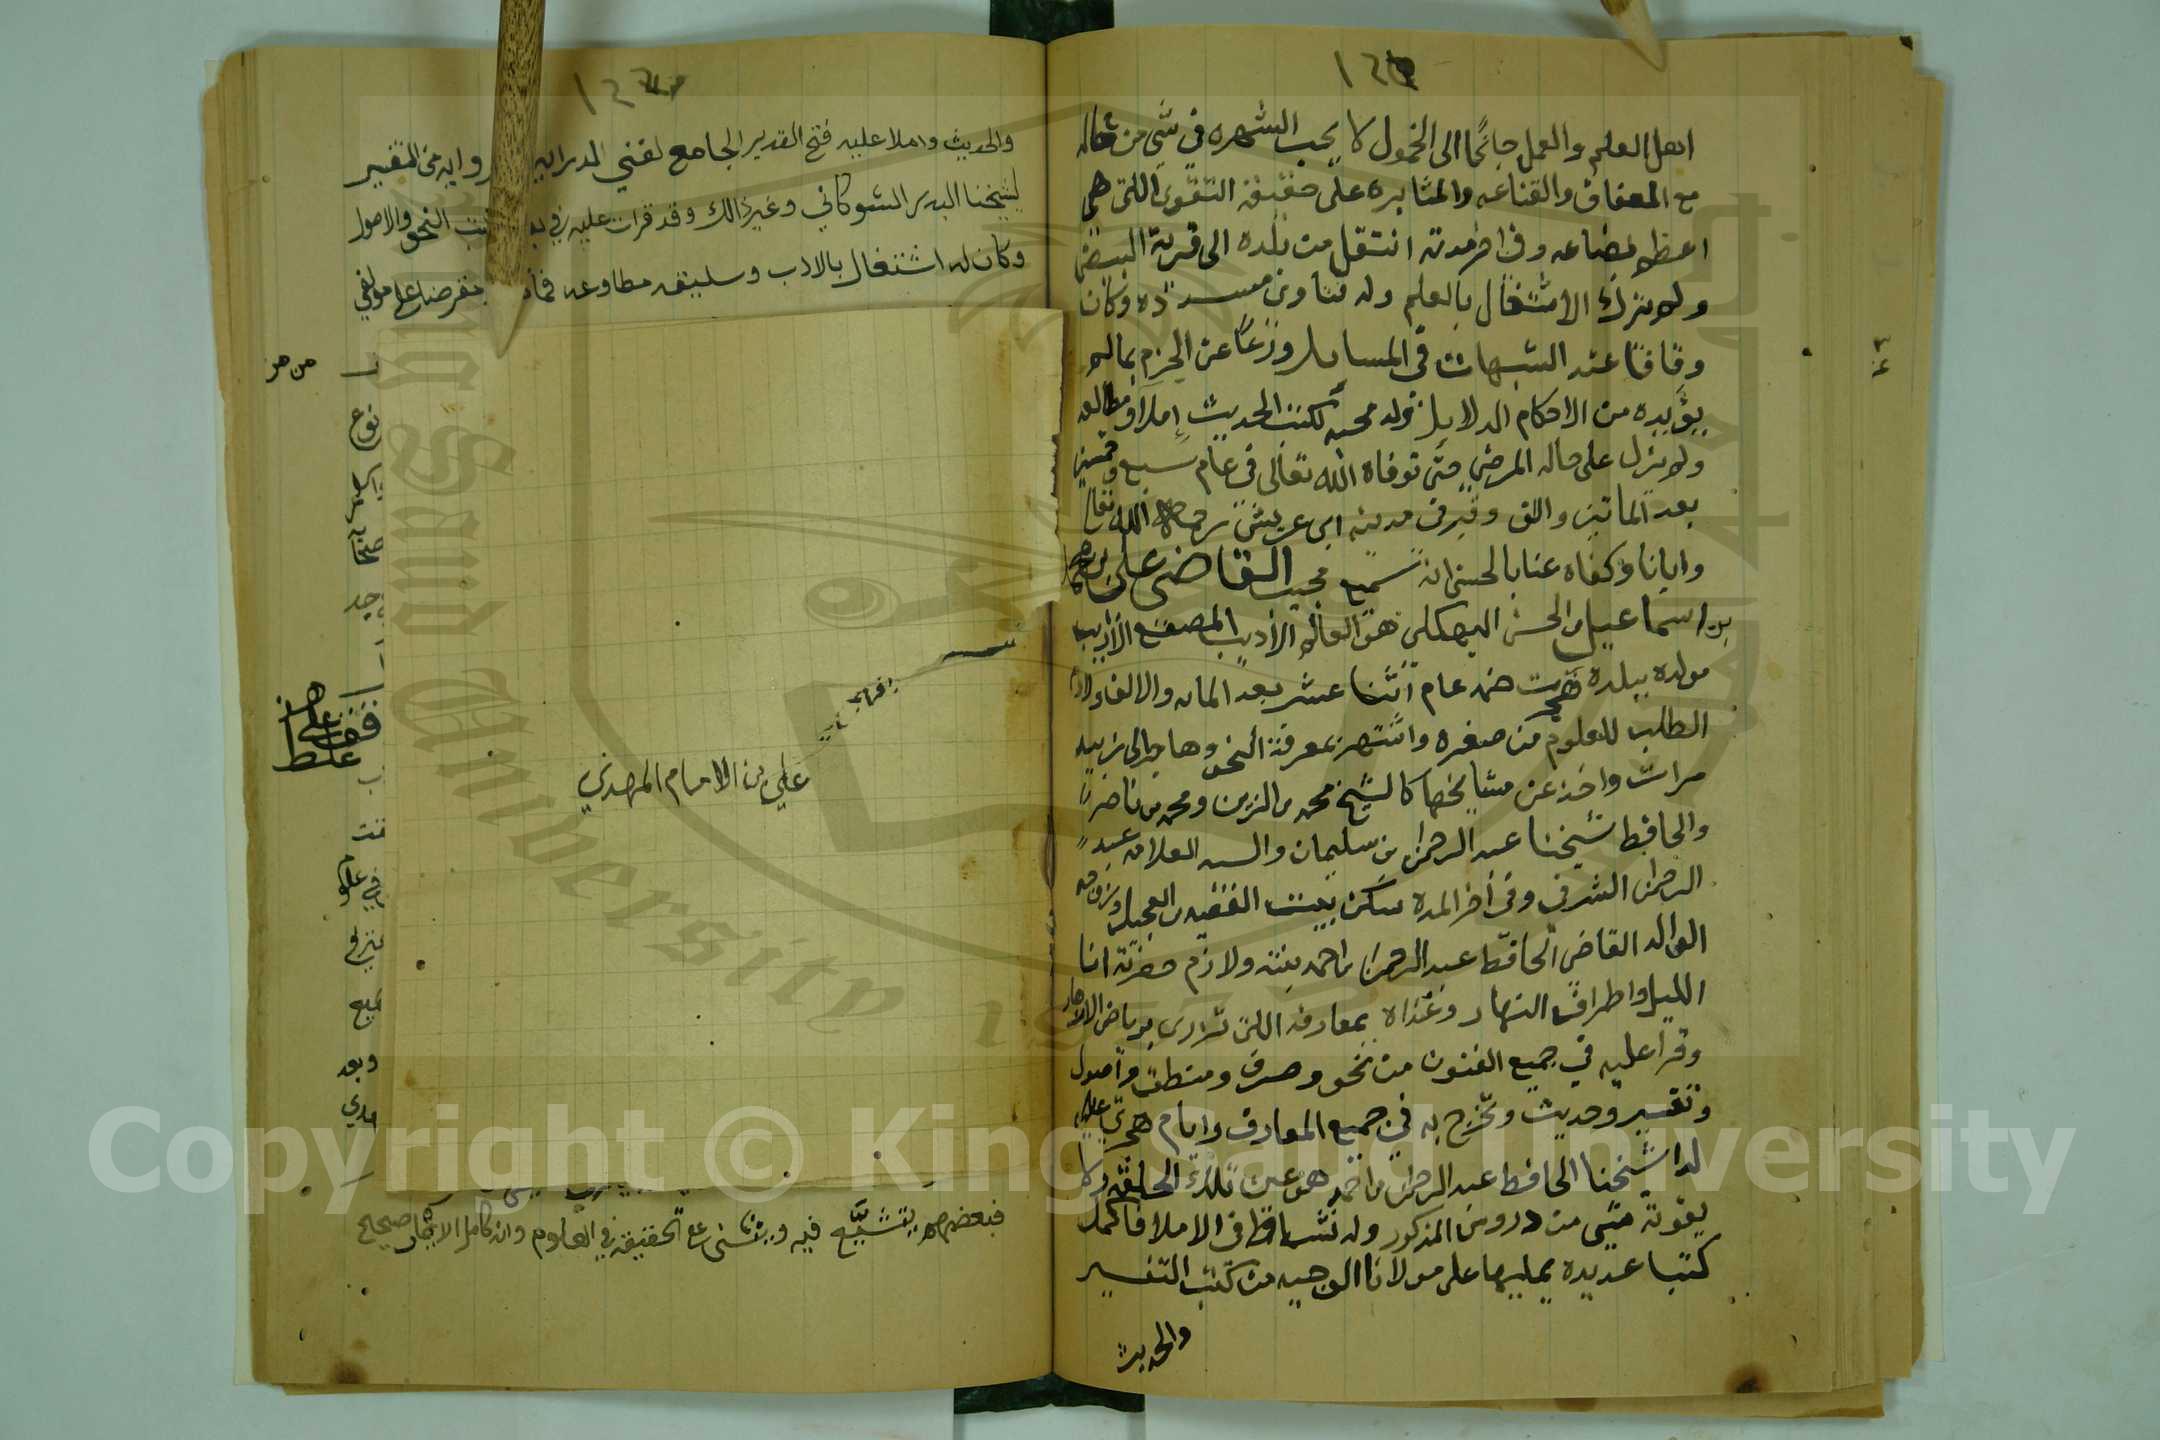 اهل العلم والعمل جانحًا الى الخمول لا يحب الشهره في شي من حاله
مع العفاف والقناعه والمثابره على حقيقة التقوى اللتي هي
اعظم بضاعه وفي اخر مدته انتقل من بلده الى قرية البيض
ولم يترك الاشتغال بالعلم وله فتاوى مسدده وكان
وقافًا عند الشبهات في المسايل ورعًا عن الجزم بما لم
يؤيده من الاحكام الدلايل وله محبه لكتب الحديث إملاً ومطالعه
ولم يزل على حاله المرضي حتى توفاه الله تعالى في عام سبع وخمسين
بعد الماتين والف وقبر في مدينه ابي عريش رحمه الله تعالى
وايانا وكفاه عنا بالحسنى انه سميع مجيب القاضي علي بن
بن اسماعيل بن الحسن البهكلي هو العالم الأديب المصقع الأريب
مولده ببلدة هجرت ضمد عام اثنا عشر بعد المايه والالف
الطلب للعلوم من صغره واشتهر بمعرفة النحو وهاجر الى زبيد
مرات واخذ عن مشايخها كالشيخ محمد بن الزين ومحمد بن ناصر
والحافظ شيخنا عبد الرحمن بن سليمان والسيد العلامه عبد
الرحمن الشرفي وفي أخر المدة سكن بيت الفقيه بن العجيل وزوجه
الوالد القاضي الحافظ عبد الرحمن بن احمد بنته ولازم حضرته انا
الليل واطراف النهار وغذاه بمعارفه اللتي تزاري برياض الازهار
وقرا عليه في جميع الفنون من نحو وصرف ومنطق وأصول
وتفسير وحديث وتخرج به في جميع المعارف وايام هجرتي
لدا شيخنا الحافظ عبد الرحمن بن احمد هو عين تلامذة الحلقه ولا
يفوته شي من دروس المذكور وله نشاط في الاملا فاكمل
كتبا عديده يمليها على مولانا الوجيه من كتب التفسير
والحديث
والحديث واملا عليه فتح القدير الجامع لفني الدرايه والروايه من التفسير
لشيخنا البدر الشوكاني وغير ذالك وقد قرات عليه في كتب النحو والاصول
وكان له اشتغال بالادب وسليقه مطاوعه مؤلفي
من هز
نوع
علي بن الامام المهدي
في علو
وبعد
فبعضهم يتشيع فيه مع تحقيقه في العلوم وانه كامل الايمان صحيح
Copyright © King Saud University